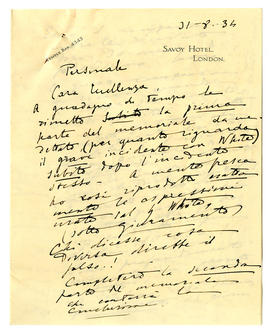 31-8-34
SAVOY HOTEL,
LONDON.
Personale
Cara Eccellenza,
A guadagno di tempo le
rimetto subito la prima
parte del memoriale da me
dettato (per quanto riguarda
il grave incidente con White)
subito dopo l'incidente
stesso. A mente fresca
ho così riprodotte esatta
mente le espressioni
usate dal White,
sotto giuramento
Chi dicesse cosa
diversa, direbbe il
falso!
Completerò la seconda
parte del memoriale